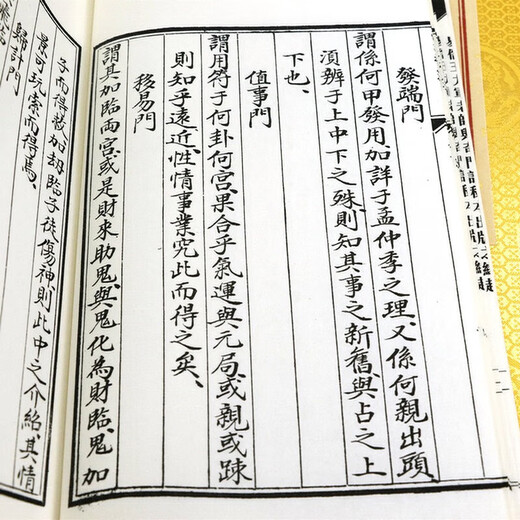 發端門
謂係何甲發用、加詳于孟仲季之理、又係何親出頭
須辨于上中下之殊、則知其事之新舊與占之上
下也、
值事門
謂用符于何卦何宮、果合乎氣運與元局、或親或踈
則知乎遠近、性情事業究此而得之矣、
移易門
謂其加臨兩宮、或是財來助鬼、與鬼化為財、臨鬼加
子而得救、加劫臨子徒傷神、則此中之介紹、其情
景可玩索而得焉、
歸計門